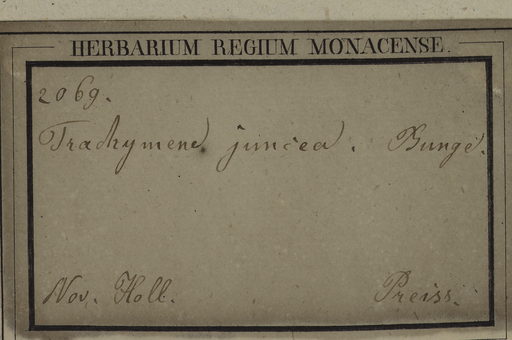 HERBARIUM REGIUM MONACENSE.
2069.
Trachymene juncea. Bunge.
Nov. Holl. Preiss.